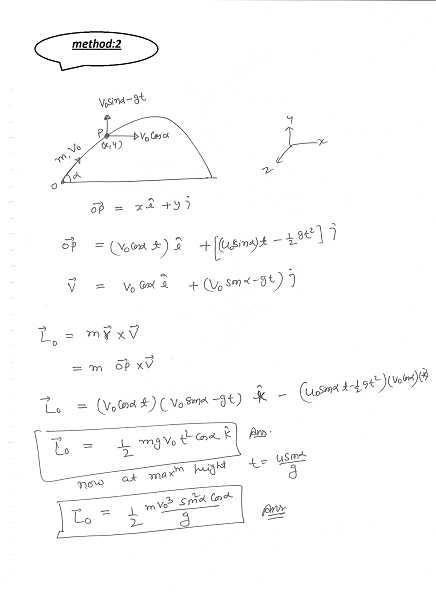 method:2
V₀sinα-gt
P → V₀cosα
(x,y)
m, V₀
α
O
y
x
z
→OP = x î + y ĵ
→OP = (V₀cosα t) î + [(u₀sinα)t - 1/2 gt²] ĵ
→V = V₀ cosα î + (V₀ sinα-gt) ĵ
→L₀ = m→r × →V
= m →OP × →V
→L₀ = (V₀cosα t)(V₀ sinα-gt) k̂ - (u₀sinα t - 1/2 gt²)(V₀cosα)(k̂)
→L₀ = 1/2 mgV₀t²cosα k̂ Ans.
now at maxᵐ height t = usinα/g
→L₀ = 1/2 mv₀³ sin²α cosα/g Ans